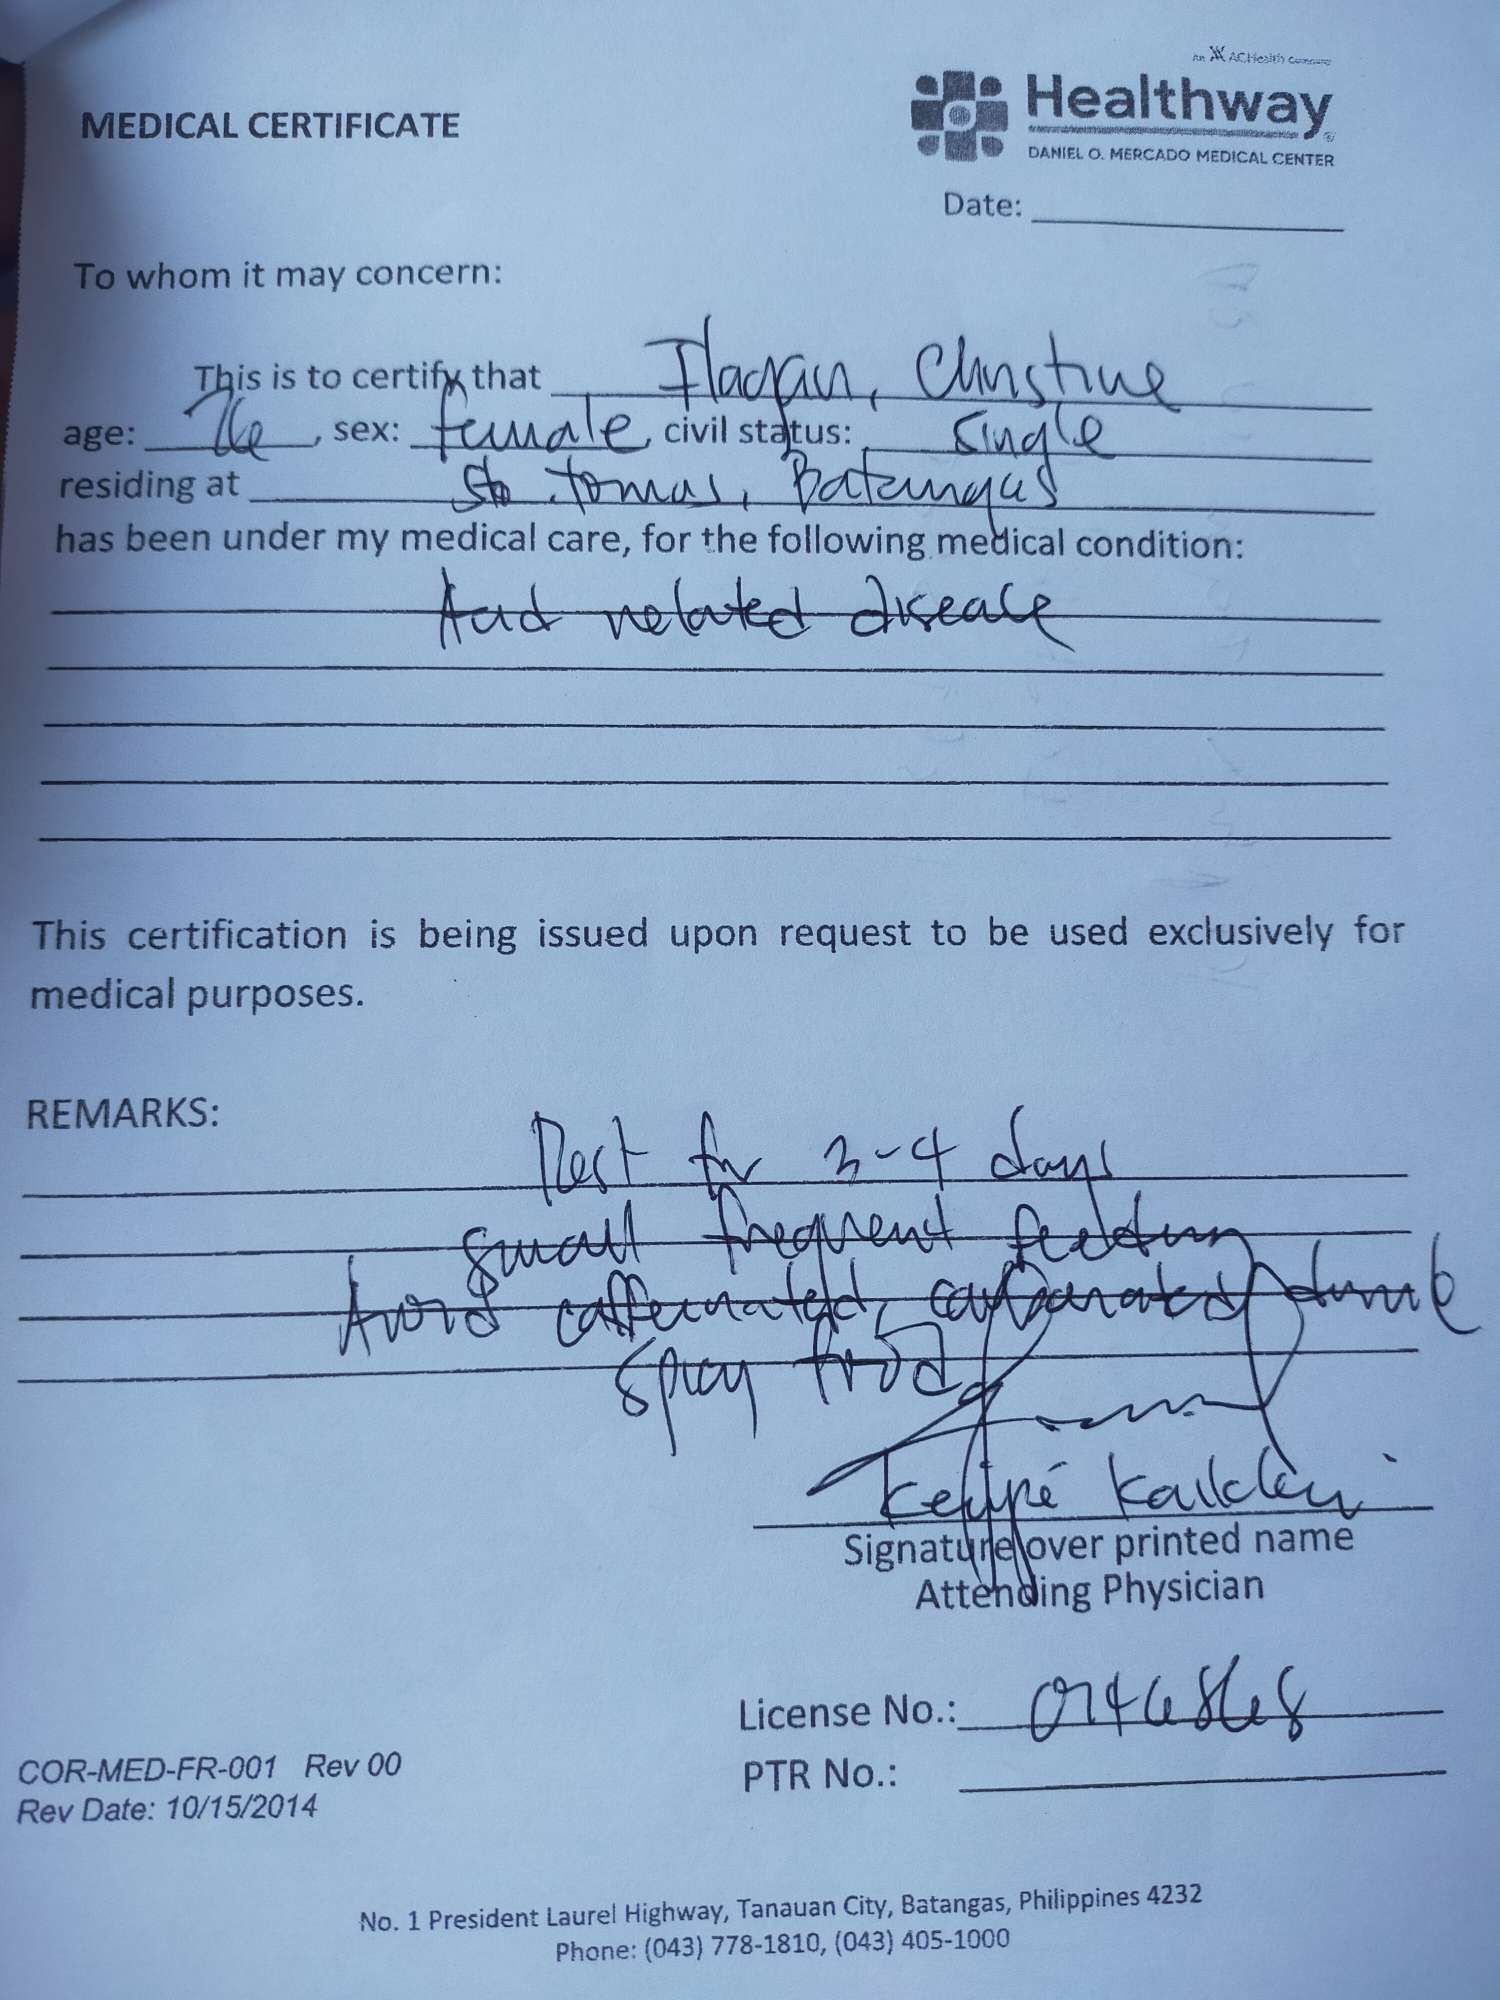 An AC Health Company
Healthway
DANIEL O. MERCADO MEDICAL CENTER
MEDICAL CERTIFICATE
Date:
To whom it may concern:
This is to certify that Ilagan, Christine
age: , sex: female, civil status: single
residing at Sto. tomas, Batangas
has been under my medical care, for the following medical condition:
Acid related disease
This certification is being issued upon request to be used exclusively for
medical purposes.
REMARKS:
Rest for 3-4 days
small frequent feeding
Avoid caffeinated, carbonated drink
spicy food
Signature over printed name
Attending Physician
License No.:
PTR No.:
COR-MED-FR-001 Rev 00
Rev Date: 10/15/2014
No. 1 President Laurel Highway, Tanauan City, Batangas, Philippines 4232
Phone: (043) 778-1810, (043) 405-1000